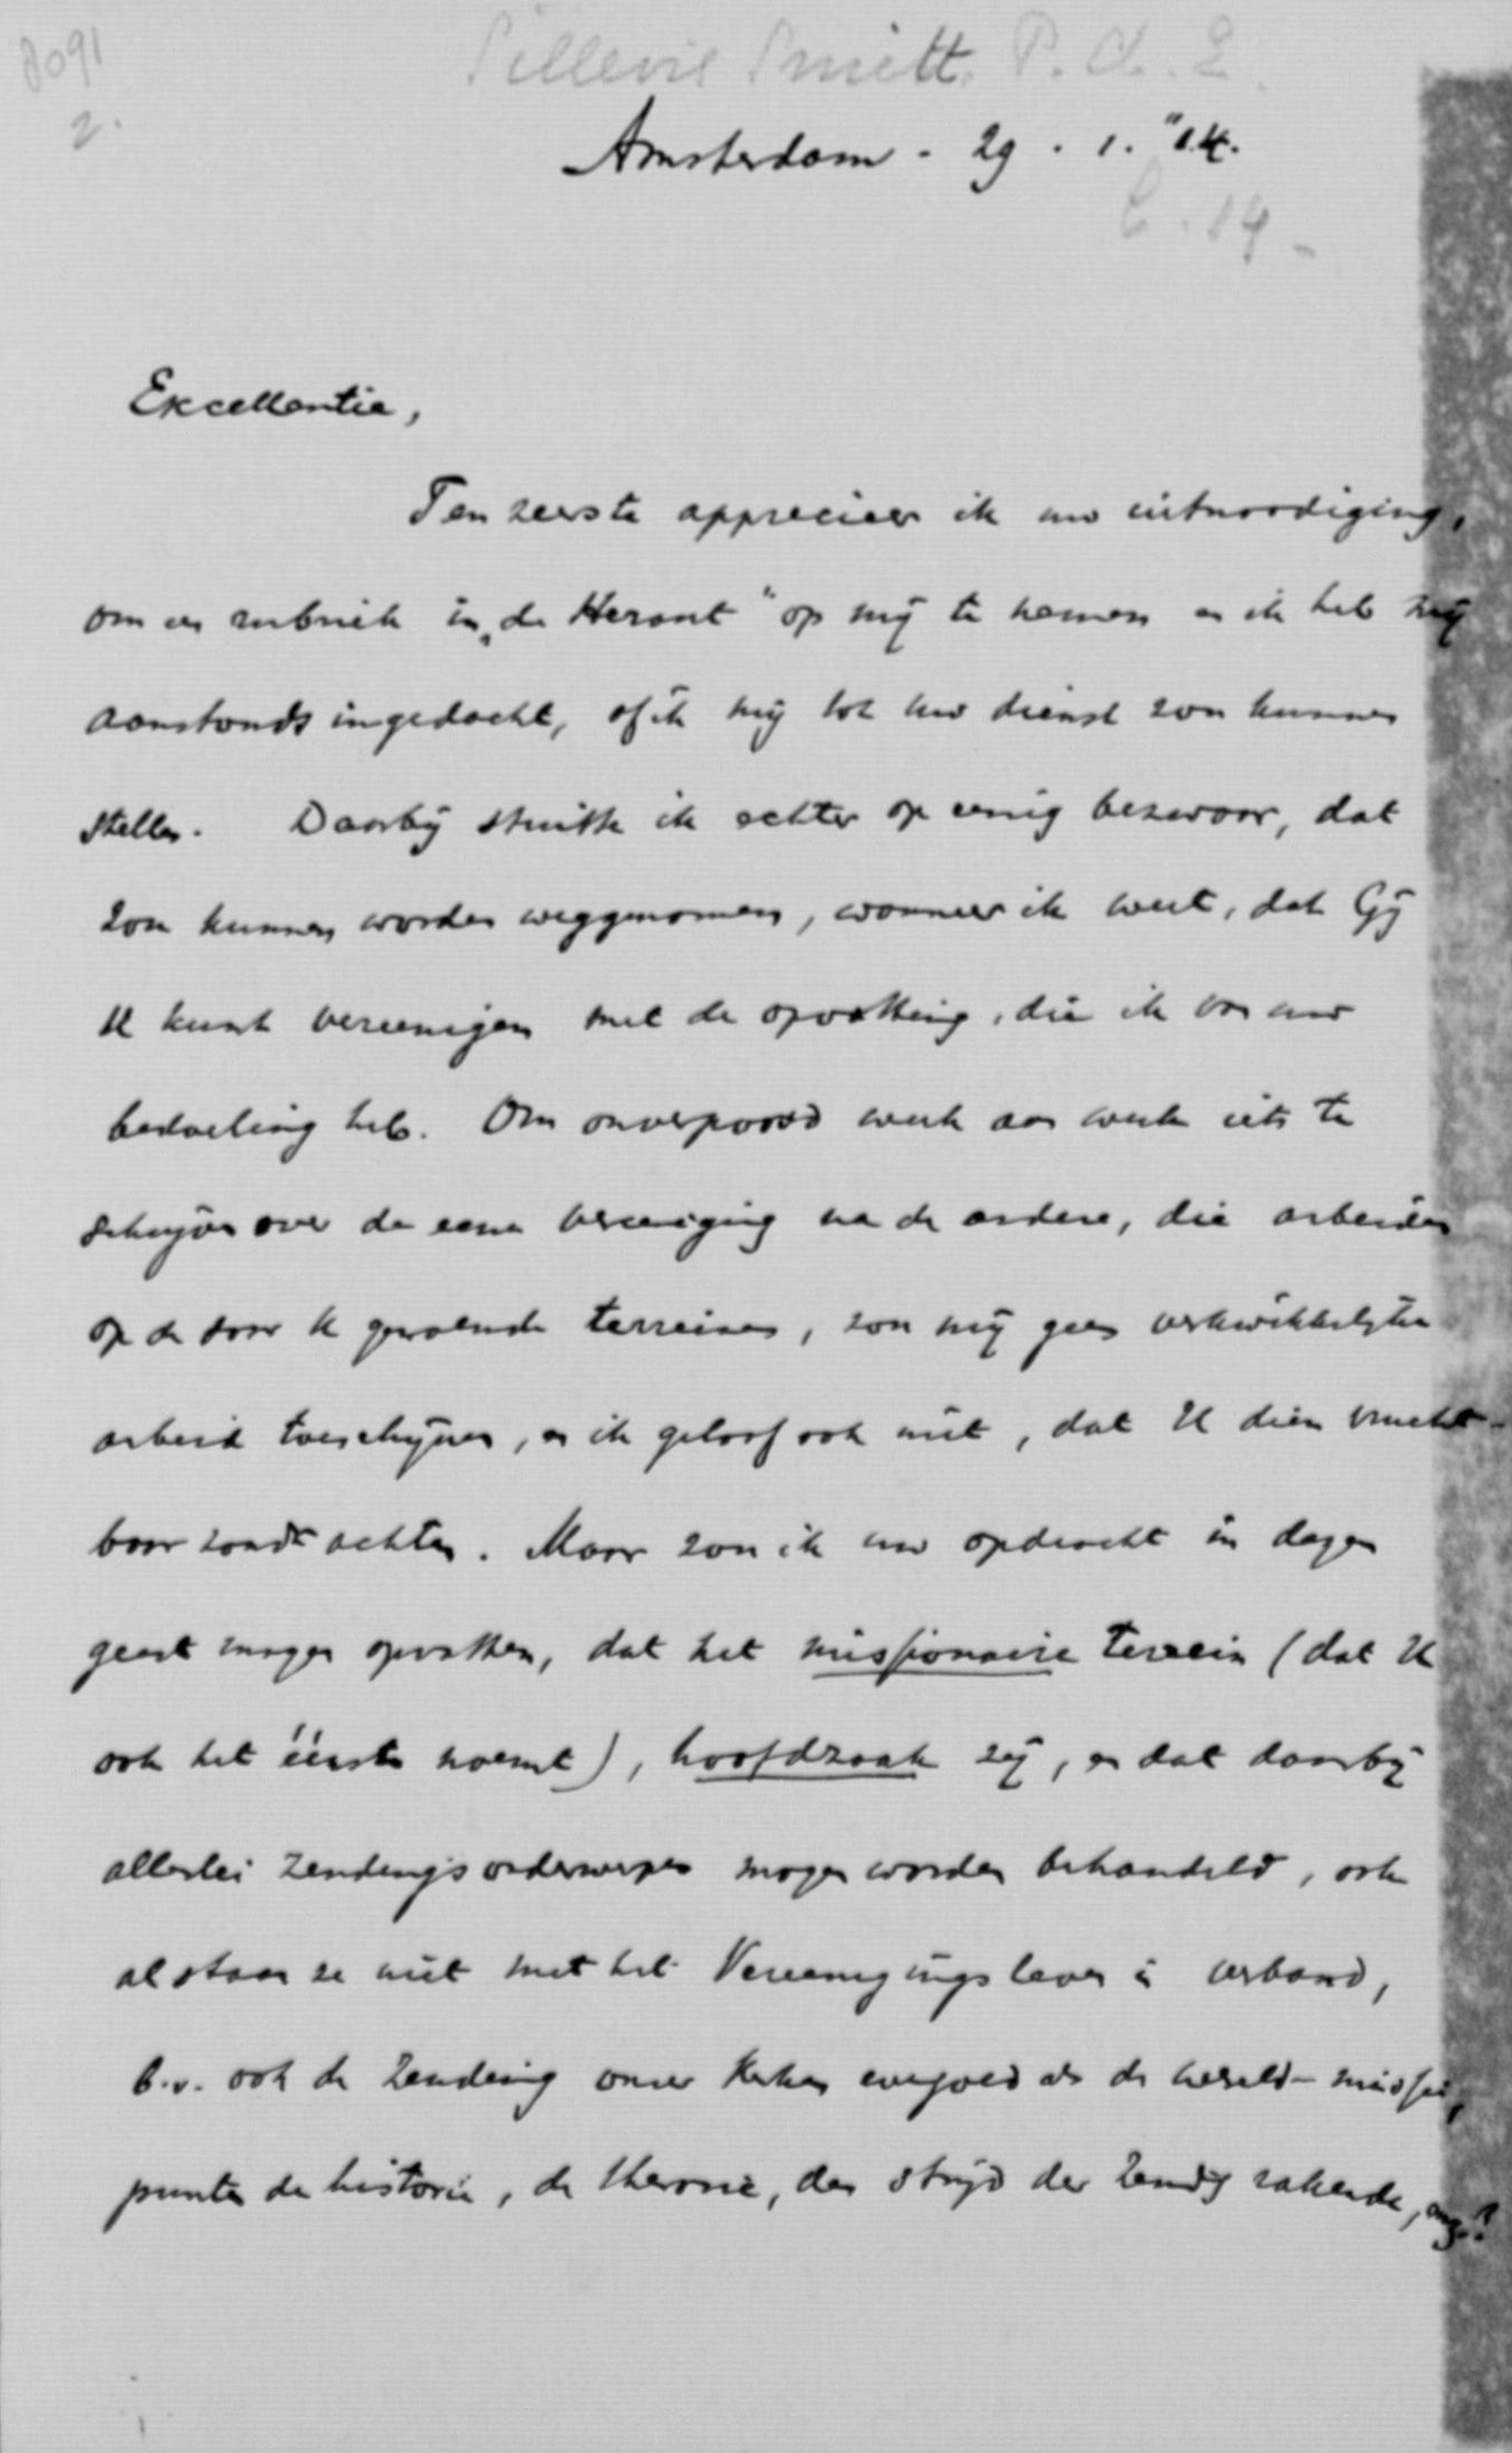 8091
2.
Sillevis Smitt. P. A. E.
Amsterdam - 29 . 1. "14.
6.14 -
Excellentie,
Ten zeerste apprecieer ik uw uitnoodiging,
om een rubriek in „de Heraut" op mij te nemen en ik heb mij
aanstonds ingedacht, of ik mij tot uw dienst zou kunnen
stellen. Daarbij stuitte ik echter op eenig bezwaar, dat
zou kunnen worden weggenomen, wanneer ik weet, dat Gij
U kunt vereenigen met de opvatting, die ik van uw
bedoeling heb. Om onverpoosd week aan week iets te
schrijven over de eene vereeniging na de andere, die arbeiden
op de door U genoemde terreinen, zou mij geen verkwikkelijke
arbeid toeschijnen, en ik geloof ook niet, dat U dien vrucht-
baar zoudt achten. Maar zou ik uw opdracht in dezen
geest mogen opvatten, dat het missionaire terrein (dat U
ook het éérste noemt), hoofdzaak zij, en dat daarbij
allerlei zendingsonderwerpen mogen worden behandeld, ook
al staan ze niet met het Vereenigingsleven in verband,
b.v. ook de Zending onzer Kerken evengoed als de wereld-missie,
punten de historie, de theorie, den strijd der Zendg rakende,